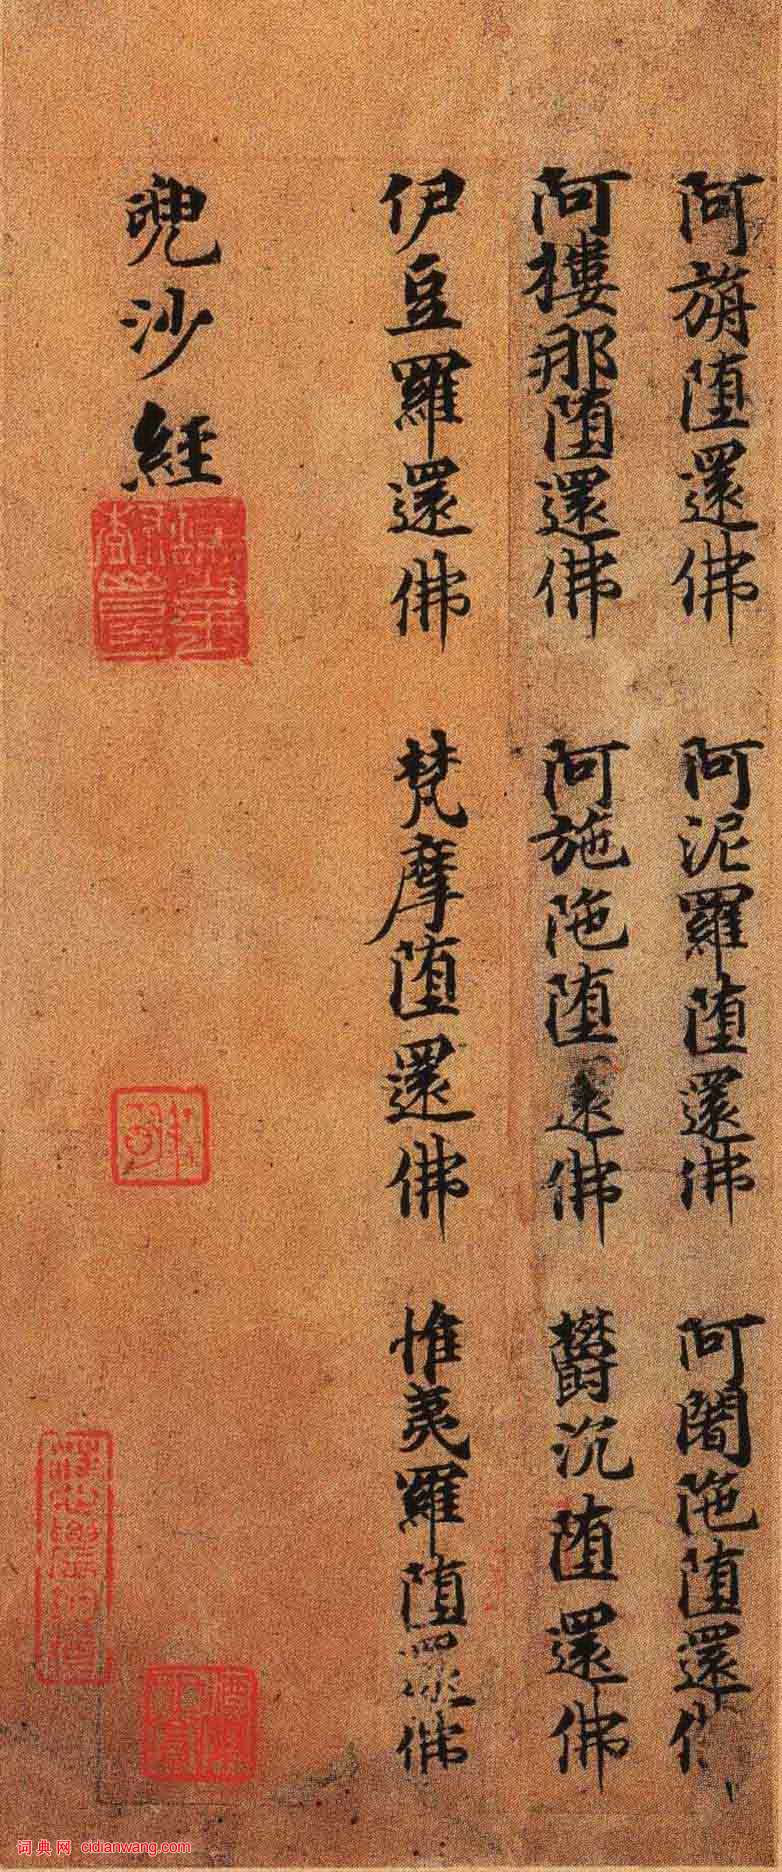 阿旃堕還佛　阿泥羅堕還佛　阿闍陁堕還佛
阿摟那堕還佛　阿施陁堕還佛　欝沉堕還佛
伊豆羅還佛　梵摩堕還佛　惟夷羅堕還佛
兜沙經
词典网 cidianwang.com